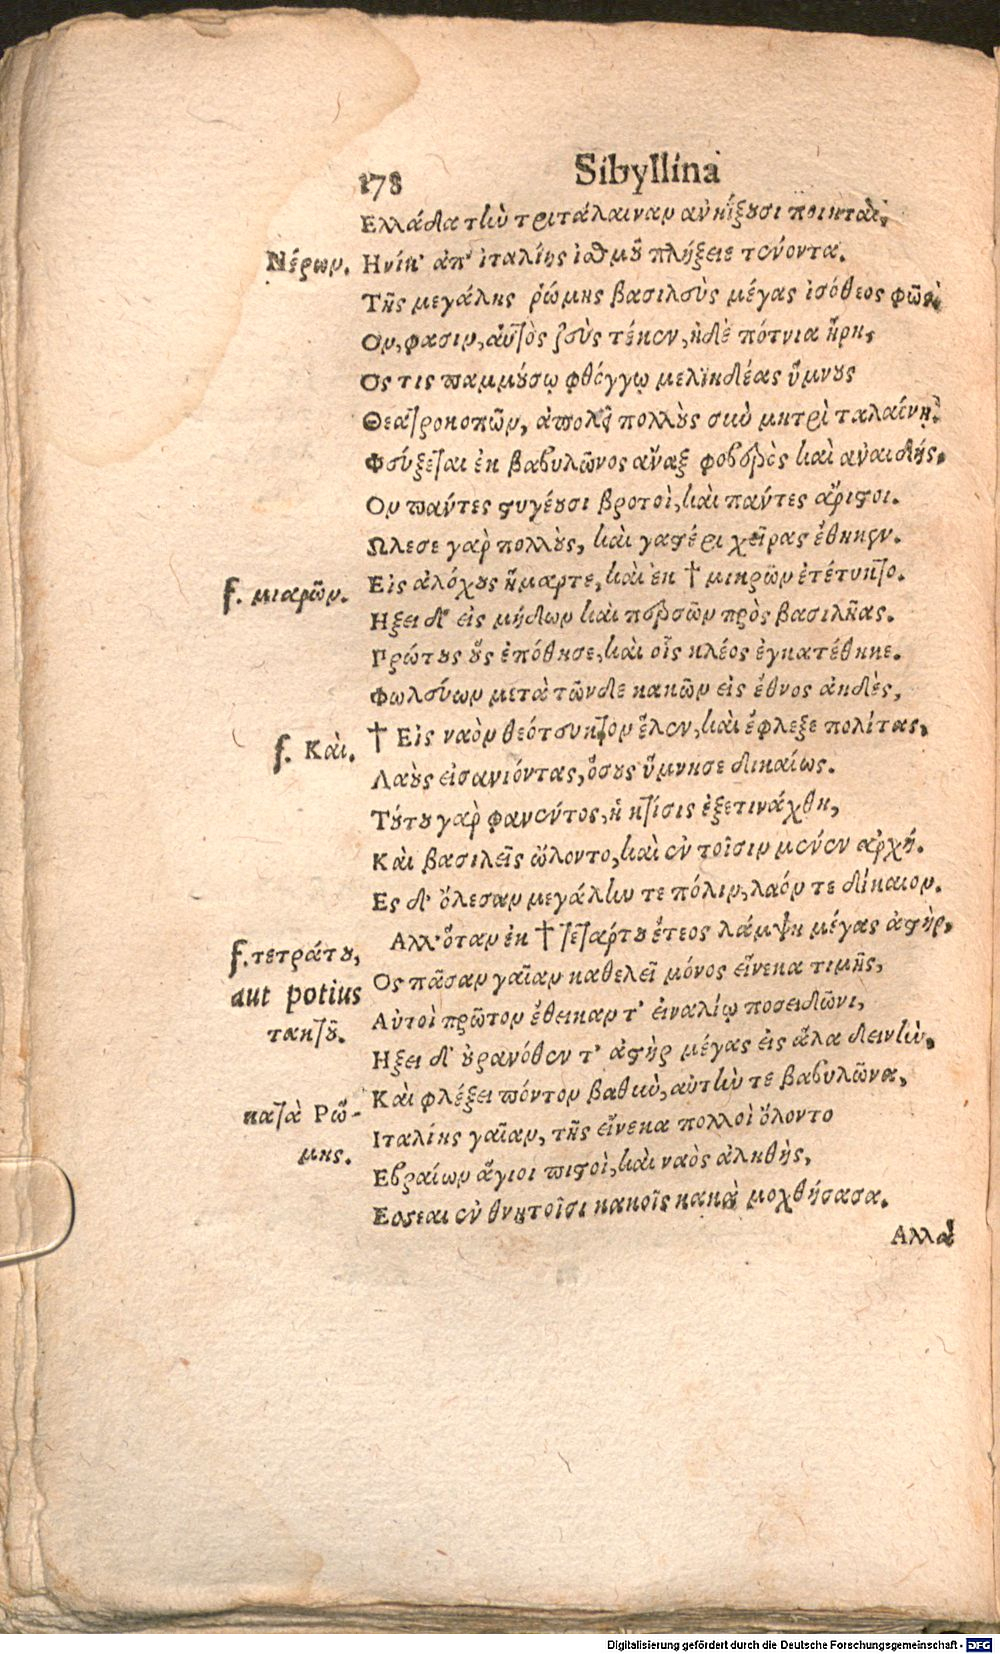 178 Sibyllina
Ελλάδα τὴν τριτάλαιναν ἀνηΐξουσι ποιηταὶ,
Νέρων. Ηνίκ' ἀπ' ἰταλίης ἰσθμοῦ πλήξειε τένοντα.
Τῆς μεγάλης ῥώμης βασιλεὺς μέγας ἰσόθεος φῶς·
Ον, φασιν, αὐτὸς ζεὺς τέκεν, ἠδὲ πότνια ἥρη,
Ος τις παμμούσῳ φθόγγῳ μελιηδέας ὕμνους
Θεατροκοπῶν, ἀπολεῖ πολλοὺς σὺν μητρὶ ταλαίνῃ.
Φεύξεται ἐκ βαβυλῶνος ἄναξ φοβερὸς καὶ ἀναιδής.
Ον πάντες στυγέουσι βροτοὶ, καὶ πάντες ἄριστοι.
Ωλεσε γὰρ πολλοὺς, καὶ γαστέρι χεῖρας ἔθηκεν.
f. μιαρῶν. Εἰς ἀλόχους ἥμαρτε, καὶ ἐκ † μικρῶν ἐτέτυκτο.
Ηξει δ' εἰς μήδων καὶ περσῶν πρὸς βασιλῆας.
Πρώτους οὓς ἐπόθησε, καὶ οἷς κλέος ἐγκατέθηκε.
Φωλεύων μετὰ τῶνδε κακῶν εἰς ἔθνος ἀηδὲς,
f. Καὶ. † Εἰς ναὸν θεότευκτον ἕλεν, καὶ ἔφλεξε πολίτας,
Λαοὺς εἰσανιόντας, ὅσους ὕμνησε δικαίως.
Τούτου γὰρ φανέντος, ἡ κτίσις ἐξετινάχθη,
Καὶ βασιλεῖς ὤλοντο, καὶ ἐν τοῖσιν μένεν ἀρχή.
Ες δ' ὄλεσαν μεγάλην τε πόλιν, λαόν τε δίκαιον.
f. τετράτου, Αλλ' ὅταν ἐκ † τετάρτου ἔτεος λάμψῃ μέγας ἀστὴρ,
aut potius Ος πᾶσαν γαῖαν καθελεῖ μόνος εἵνεκα τιμῆς,
τακτοῦ. Αὐτοὶ πρῶτον ἔθεικαν τ' εἰναλίῳ ποσειδῶνι,
Ηξει δ' οὐρανόθεν τ' ἀστὴρ μέγας εἰς ἅλα δεινὴν,
Καὶ φλέξει πόντον βαθὺν, αὐτὴν τε βαβυλῶνα,
κατὰ Ρώ- Ιταλίης γαῖαν, τῆς εἵνεκα πολλοὶ ὄλοντο
μης. Εβραίων ἅγιοι πιστοὶ, καὶ ναὸς ἀληθής,
Εσσεαι ἐν θνητοῖσι κακοῖς κακὰ μοχθήσασα.
Αλλὰ
Digitalisierung gefördert durch die Deutsche Forschungsgemeinschaft - DFG